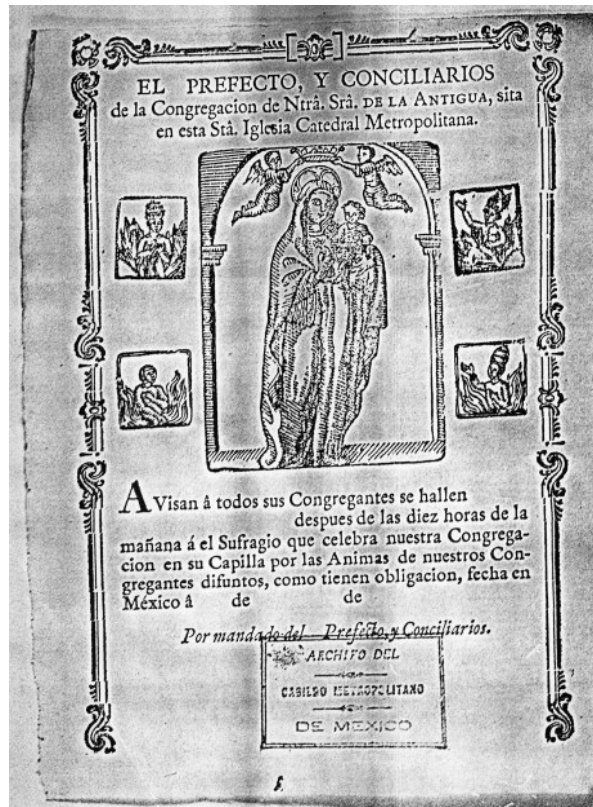 EL PREFECTO, Y CONCILIARIOS
de la Congregacion de Ntrâ. Srâ. DE LA ANTIGUA, sita
en esta Stâ. Iglesia Catedral Metropolitana.
AVisan â todos sus Congregantes se hallen
despues de las diez horas de la
mañana á el Sufragio que celebra nuestra Congrega-
cion en su Capilla por las Animas de nuestros Con-
gregantes difuntos, como tienen obligacion, fecha en
México â de de
Por mandado del Prefecto, y Conciliarios.
ARCHIVO DEL
CABILDO METROPOLITANO
DE MEXICO